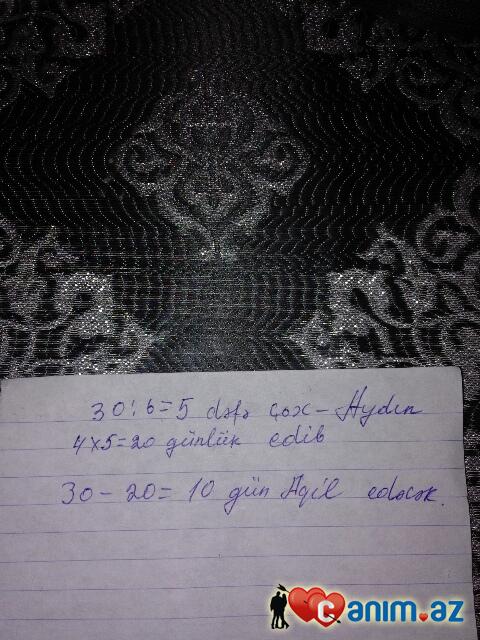 30:6=5 dəfə çox-Aydın
4x5=20 günlük edib
30-20=10 gün Aqil edəcək.
canim.az